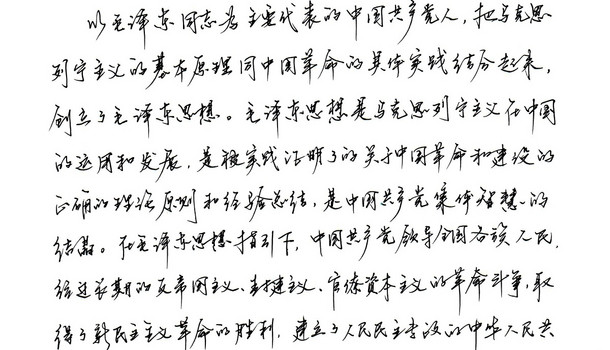 以毛泽东同志为主要代表的中国共产党人，把马克思
列宁主义的基本原理同中国革命的具体实践结合起来，
创立了毛泽东思想。毛泽东思想是马克思列宁主义在中国
的运用和发展，是被实践证明了的关于中国革命和建设的
正确的理论原则和经验总结，是中国共产党集体智慧的
结晶。在毛泽东思想指引下，中国共产党领导全国各族人民，
经过长期的反帝国主义、封建主义、官僚资本主义的革命斗争，取
得了新民主主义革命的胜利，建立了人民民主专政的中华人民共